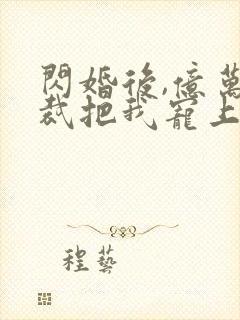 閃婚後,億萬
裁把我寵上
程藝